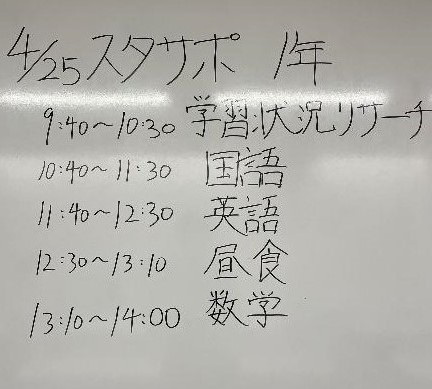 4/25 スタサポ 1年
9:40〜10:30 学習状況リサーチ
10:40〜11:30 国語
11:40〜12:30 英語
12:30〜13:10 昼食
13:10〜14:00 数学